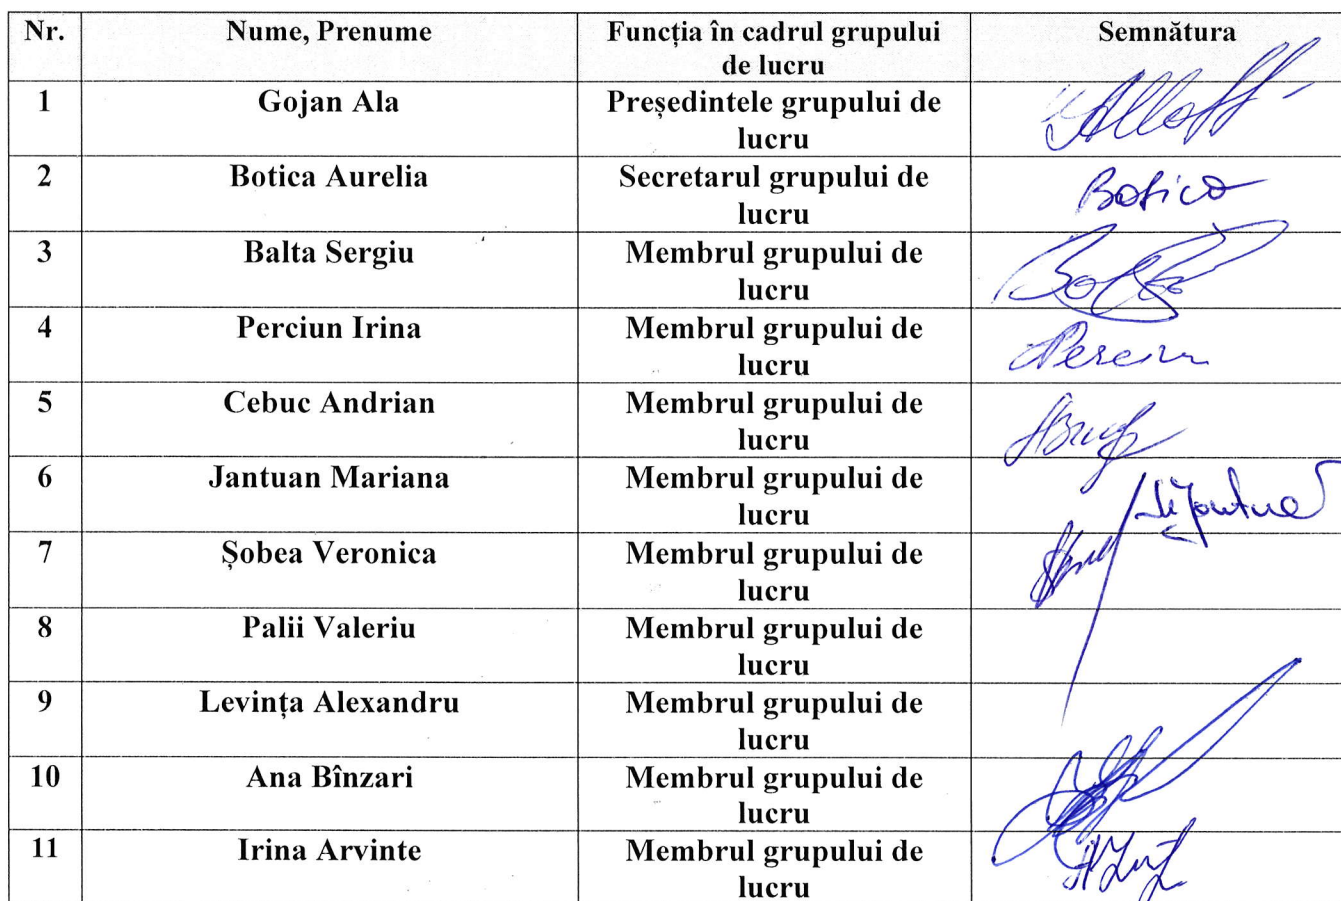 Nr. Nume, Prenume Funcția în cadrul grupului Semnătura
de lucru
1 Gojan Ala Președintele grupului de
lucru
2 Botica Aurelia Secretarul grupului de Botica
lucru
3 Balta Sergiu Membrul grupului de
lucru
4 Perciun Irina Membrul grupului de
lucru
5 Cebuc Andrian Membrul grupului de
lucru
6 Jantuan Mariana Membrul grupului de
lucru
7 Șobea Veronica Membrul grupului de
lucru
8 Palii Valeriu Membrul grupului de
lucru
9 Levința Alexandru Membrul grupului de
lucru
10 Ana Bînzari Membrul grupului de
lucru
11 Irina Arvinte Membrul grupului de
lucru